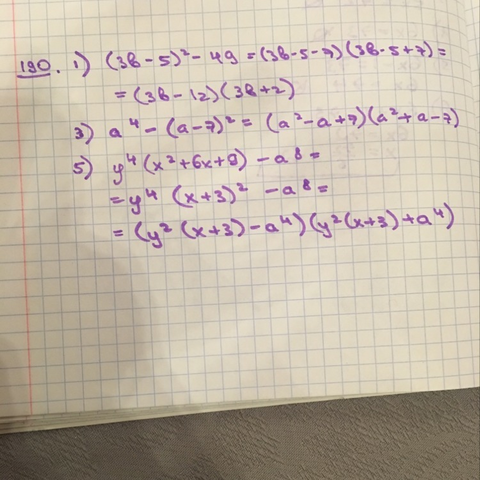 190. 1) (3b-5)² - 49 = (3b-5-7)(3b-5+7) =
= (3b-12)(3b+2)
3) a⁴ - (a-7)² = (a²-a+7)(a²+a-7)
5) y⁴(x²+6x+9) - a⁸ =
= y⁴ (x+3)² - a⁸ =
= (y² (x+3) - a⁴)(y²(x+3)+a⁴)